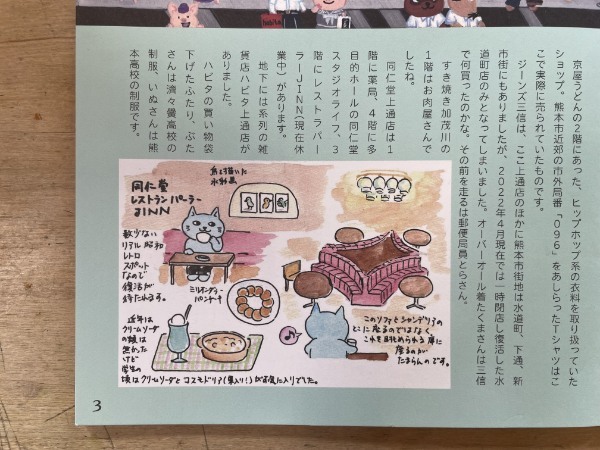 京屋うどんの2階にあった、ヒップホップ系の衣料を取り扱っていた
ショップ。熊本市近郊の市外局番「096」をあしらったTシャツはこ
こで実際に売られていたものです。
ジーンズ三信は、ここ上通店のほかに熊本市街地は水道町、下通、新
市街にもありましたが、2022年4月現在では一時閉店し復活した水
道町店のみとなってしまいました。オーバーオール着たくまさんは三信
で何買ったのかな。その前を走るは郵便局員とらさん。
すき焼き加茂川の
1階はお肉屋さんで
したね。
同仁堂上通店は1
階に薬局、4階に多
目的ホールの同仁堂
スタジオライフ、3
階にレストランパー
ラーJINN(現在休
業中)があります。
地下には系列の雑
貨店ハビタ上通店が
ありました。
ハビタの買い物袋
下げたふたり、ぶた
さんは濟々黌高校の
制服、いぬさんは熊
本高校の制服です。
同仁堂
レストランパーラー
JINN
鳥を描いた
水彩画
数少ない
リアル昭和
レトロ
スポット
なので
復活が
待たれます。
ミルキーティー
パンケーキ
近年は
クリームソーダ
の類は
無かった
けど
学生の
頃はクリームソーダとコスモドリア(栗入り!)がお気に入りでした。
このソファとシャンデリアの
とこに座るのではなく、
これを眺められる席に
座るのが
たまらんのです。
3